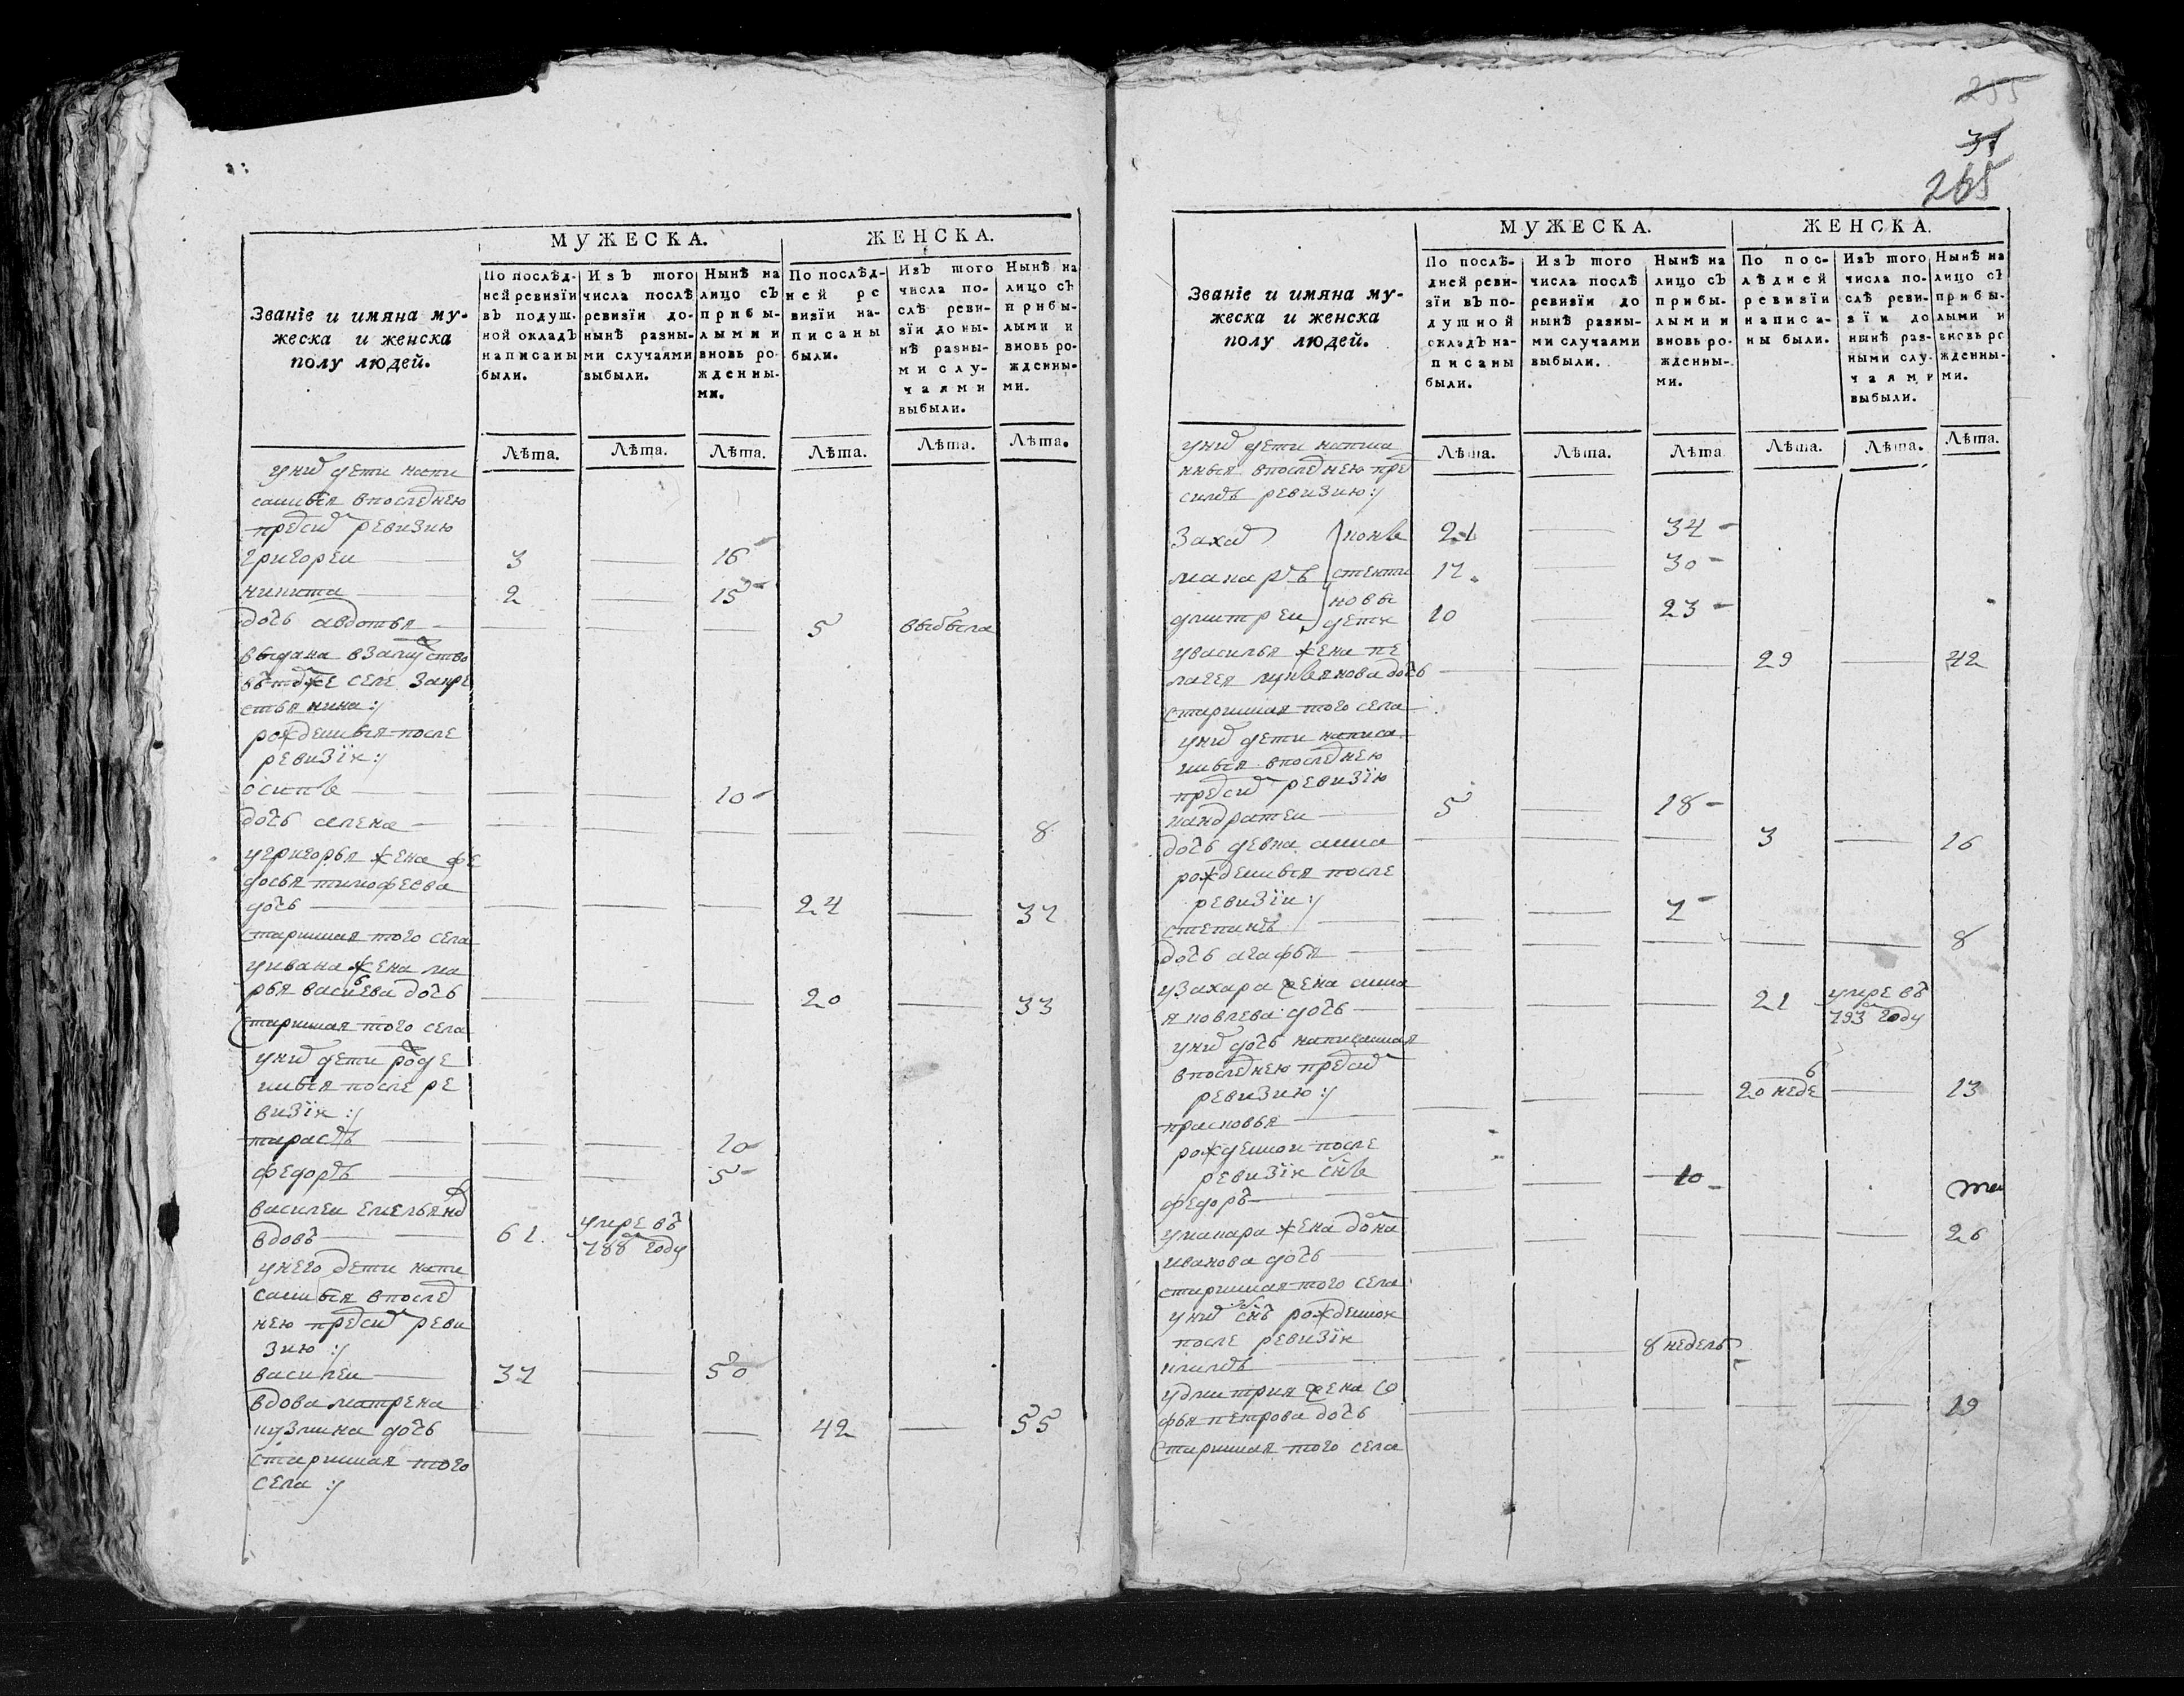 МУЖЕСКА.
ЖЕНСКА.
Званіе и имяна му-
жеска и женска
полу людей.
По послѣд-
ней ревизїи
въ подуш-
ной окладъ
написаны
были.
Изъ того
числа послѣ
ревизїи до-
нынѣ разны-
ми случаями
выбыли.
Нынѣ на
лицо съ
прибы-
лыми и
вновь ро-
жденны-
ми.
По послѣд-
ней ре
визїи на-
писаны
были.
Изъ того
числа по-
слѣ реви-
зїи до ны-
нѣ разны-
ми слу-
чаями
выбыли.
Нынѣ на
лицо съ
прибы-
лыми и
вновь ро-
жденны-
ми.
Лѣта. Лѣта. Лѣта. Лѣта. Лѣта. Лѣта.
у них дети напи
саныя впоследнею
предсим ревизию
григореи 3 — 16
никита — 2 — 15
дочь авдотья — — — 5 выбыла
выдана взамуство
втомже селе закре
стьянина :/
рожденыя после
ревизїи :/
осипъ — — — 10
дочь алена — — — — — 8
угригорья жена фе
досья тимофеева
дочь — — — — 24 — 37
старинная того села
уивана жена ма
рья васильева дочь — — — 20 — 33
старинная того села
у них дети роде
ныя после ре
визїи :/
тарасъ — — — 10
федоръ — — — 5
василеи емельянов
вдовъ — 61. умре въ
788 году
унего дети напи
саныя впослед
нею предсим реви
зию :/
василеи — 37 — 50
вдова матрена
кузмина дочь — — — 42 — 55
старинная того
села :/
255
31
265
МУЖЕСКА.
ЖЕНСКА.
Званіе и имяна му-
жеска и женска
полу людей.
По послѣ-
дней реви-
зїи въ по-
душной
окладъ на-
писаны
были.
Изъ того
числа послѣ
ревизїи до
нынѣ разны-
ми случаями
выбыли.
Нынѣ на
лицо съ
прибы-
лыми и
вновь ро-
жденны-
ми.
По пос-
лѣдней
ревизїи
написа-
ны были.
Изъ того
числа по-
слѣ реви-
зїи до
нынѣ раз-
ными слу-
чаями
выбыли.
Нынѣ на
лицо съ
прибы-
лыми и
вновь ро
жденны-
ми.
Лѣта. Лѣта. Лѣта Лѣта. Лѣта. Лѣта.
у них дети написа
ныя впоследнею пред
симъ ревизию :/
Захар 21 — 34
макаръ 17. — 30
дмитреи дети 10 — 23
увасилья жена пе
лагея лукьянова дочь — — — 29 — 42
старинная того села
у них дети написа
ныя впоследнею
предсим ревизїю
кандратеи 5 — 18
дочь девка анна — — — 3 — 16
рожденыя после
ревизїи :/
степанъ — — — 7
дочь агафья — — — — — — 8
узахара жена анна
яковлева дочь — — — — 21 умре въ
793 году
у них дочь написанная
впоследнею предсим
ревизию :/
прасковья — — — — 20 недель — 13
рожденои после
ревизїи снъ
федоръ — — — 10
умакара жена домна
иванова дочь — — — — — 26
старинная того села
у них снъ рожденои
после ревизїи
климъ — — — 8 недель
удмитрия жена со
фья петрова дочь — — — — — 19
старинная того села